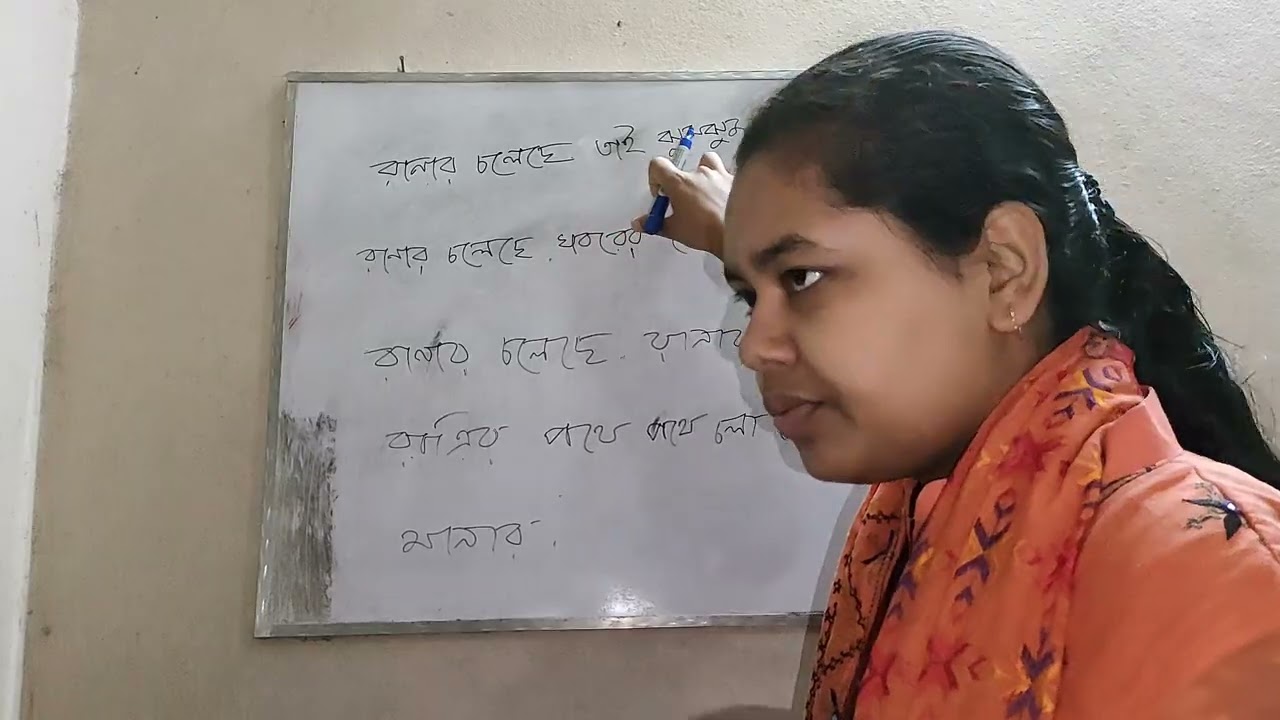 রানার চলেছে তাই ঝুমঝুম
রানার চলেছে খবরের
রানার চলেছে. রানার
রাত্রির পথে পথে চলে
মানার.